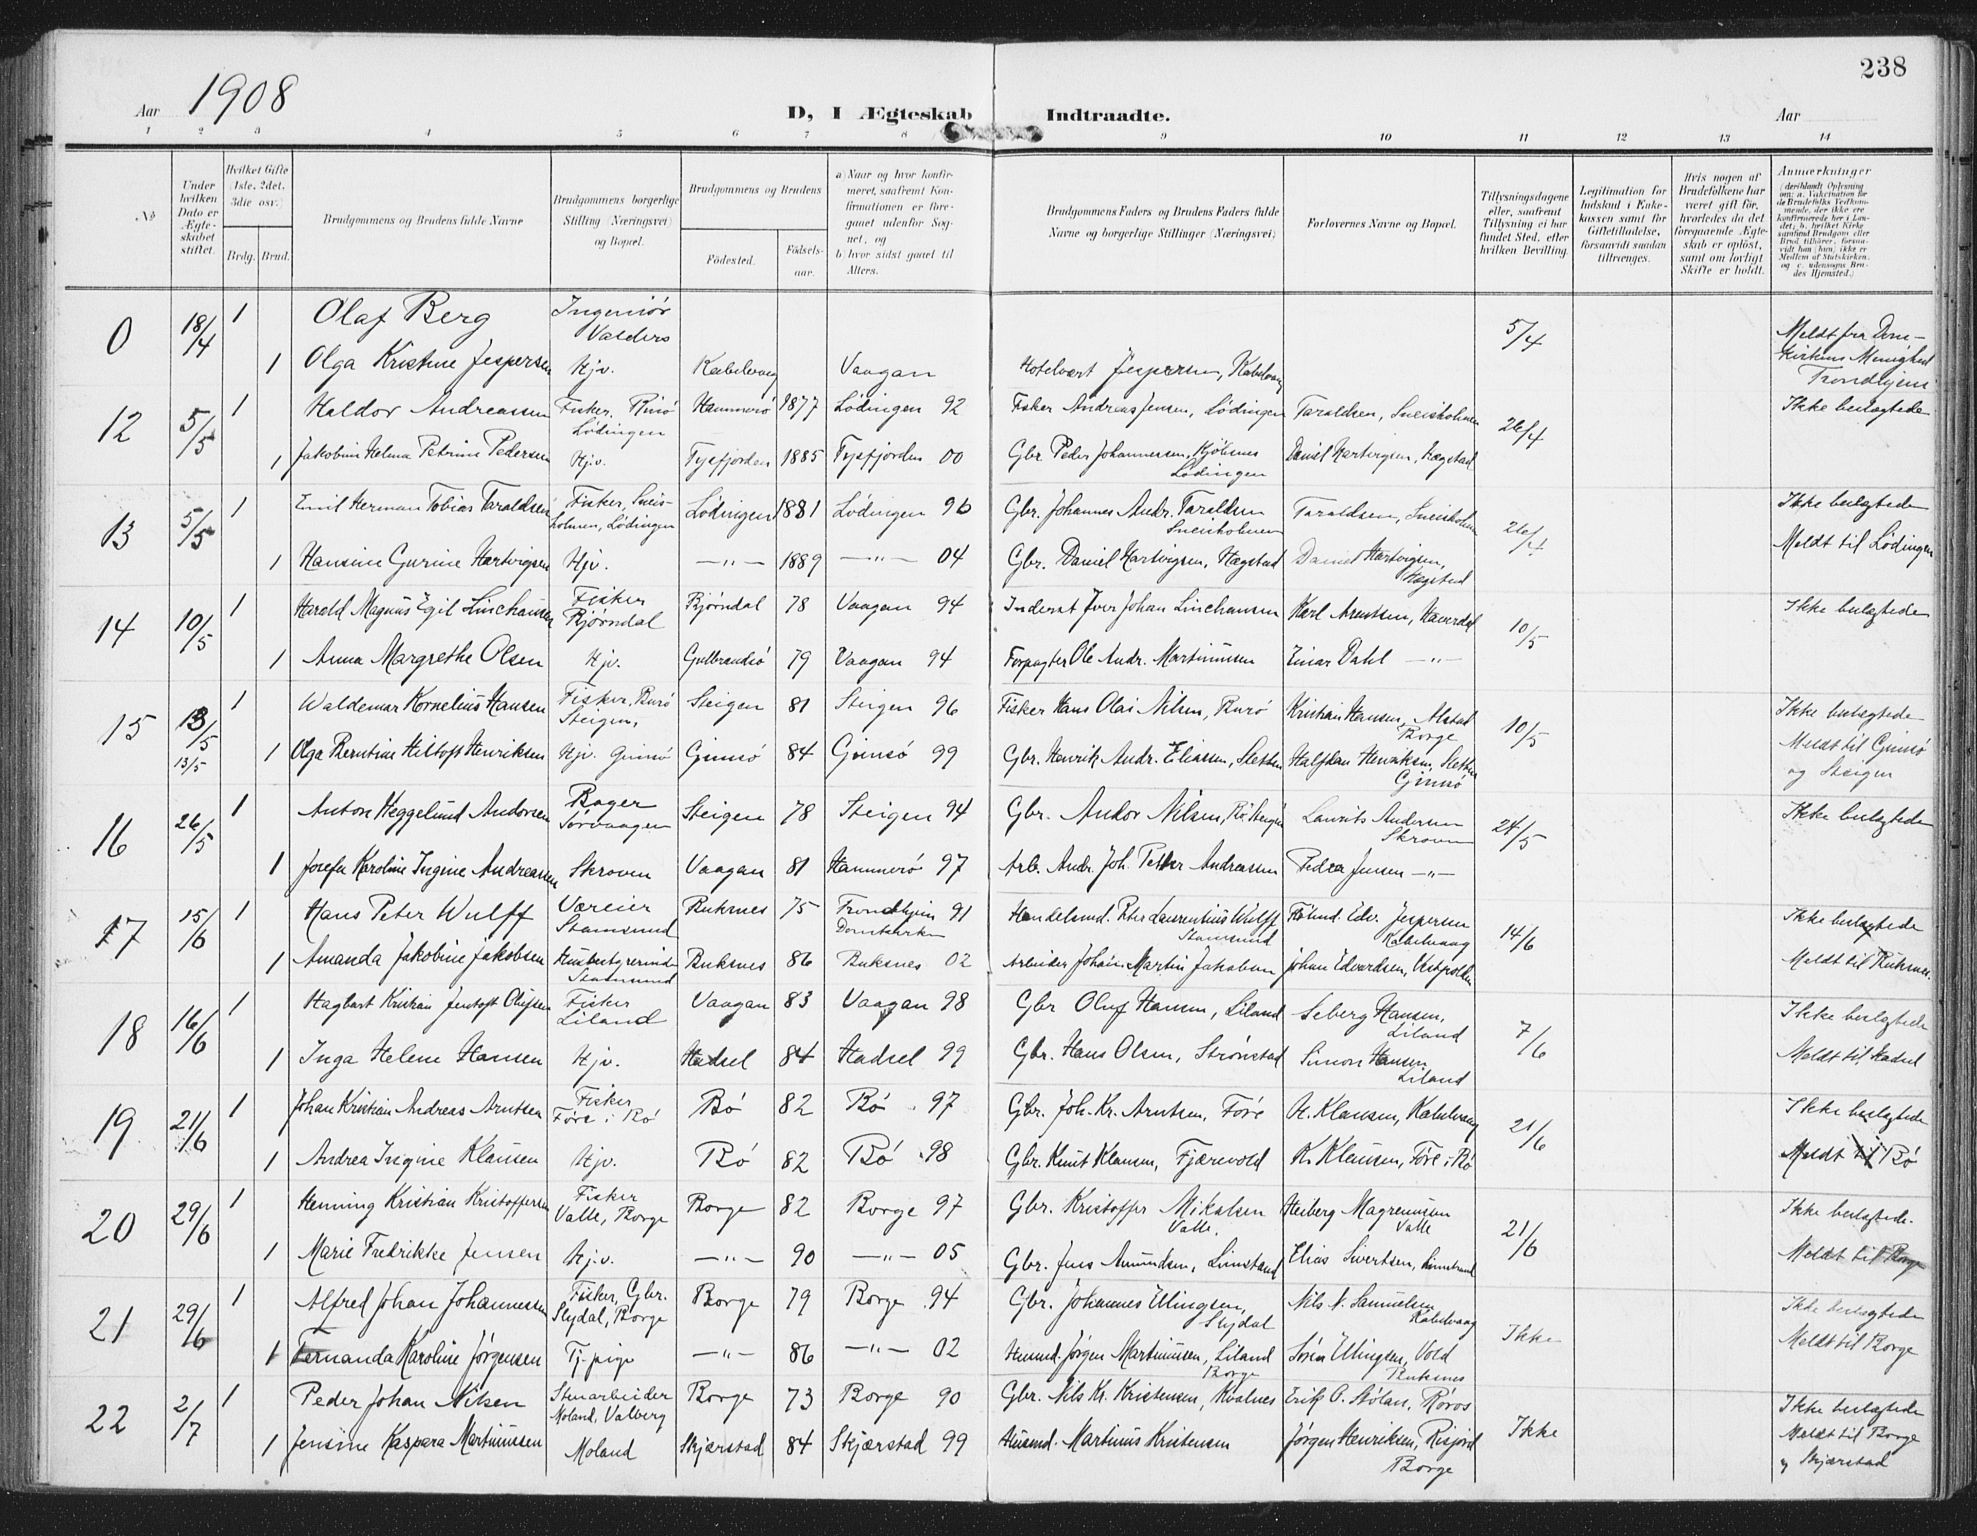 238
Aar 1908
D, I Ægteskab Indtraadte. Aar
1 2 3 4 5 6 7 8 9 10 11 12 13 14
No
Under hvilken Dato er Ægteskabet stiftet.
Hvilket Gifte (1ste, 2det, 3die osv.)
Brdg. Brud.
Brudgommens og Brudens fulde Navne
Brudgommens borgerlige Stilling (Næringsvei) og Bopæl.
Brudgommens og Brudens
Fødested. Fødselsaar.
a) Naar og hvor konfirmeret, saafremt Konfirmationen er foregaaet udenfor Sognet, og
b) hvor sidst gaaet til Alters.
Brudgommens Faders og Brudens Faders fulde Navne og borgerlige Stillinger (Næringsvei)
Forlovernes Navne og Bopæl.
Tillysningsdagene eller, saafremt Tillysning ei har fundet Sted, efter hvilken Bevilling.
Legitimation for Indskud i Enkekassen samt for Giftetilladelse, forsaavidt saadan tiltrænges.
Hvis nogen af Brudefolkene har været gift før, hvorledes da det foregaaende Ægteskab er opløst, samt om lovligt Skifte er holdt.
Anmerkninger
(deriblandt Oplysning om: a. Vakcination for de Brudefolks Vedkommende, der ikke ere konfirmerede her i Landet; b. hvilket Kirkesamfund Brudgom eller Brud tilhører, forsaavidt han/hun, ikke er Medlem af Statskirken, og c. udensogns Brudes Hjemsted.)
0 18/4 1 Olaf Berg Ingeniör Valders 5/4 Meldt fra Dom-kirkens Menighed Trondhjem
1 Olga Kristine Jespersen Hjv. Kabelvaag Vaagan Hotelvært Jespersen, Kabelvaag
12 5/5 1 Haldor Andreassen Fisker, Rinö Lödingen Hammerö 1877 Lödingen 92 Fisker Andreas Jensen, Lödingen Taraldsen, Sneisholmen 26/4 Ikke beslægtede
1 Jakobine Helena Petrine Pedersen Hjv. Tysfjorden 1885 Tysfjorden 00 Gbr. Peder Johannessen, Kjöbsnes Lödingen Daniel Hartvigsen, Hægstad
13 5/5 1 Emil Herman Tobias Taraldsen Fisker, Sneisholmen, Lödingen Lödingen 1881 Lödingen 96 Gbr. Johannes Andr. Taraldsen Sneisholmen Taraldsen, Sneisholmen 26/4 Ikke beslægtede
1 Hansine Gurine Hartvigsen Hjv. —"— 1889 —"— 04 Gbr. Daniel Hartvigsen, Hægstad Daniel Hartvigsen, Hægstad Meldt til Lödingen
14 10/5 1 Harold Magnus Egil Linchausen Fisker Björndal Björndal 78 Vaagan 94 Inderst Iver Johan Linchausen Karl Arntsen, 10/5 Ikke beslægtede
1 Anna Margrethe Olsen Hjv. Gulbrandsö 79 Vaagan 94 Forpagter Ole Andr. Martinussen Einar Dahl —"—
15 13/5 1 Waldemar Kornelius Hansen Fisker, Burö Steigen, Steigen 81 Steigen 96 Fisker Hans Olai Nilsen, Burö Kristian Hansen, Alstad Borge 10/5 Ikke beslægtede
13/5 1 Olga Berntine Hiltoft Henriksen Hjv. Gimsö Gimsö 84 Gimsö 99 Gbr. Henrik Andr. Eliassen, Sletten Halfdan Henriksen, Sletten Gimsö Meldt til Gimsö og Steigen
16 26/5 1 Anton Heggelund Andorsen Bager Sørvaagen Steigen 78 Steigen 94 Gbr. Andor Nilsen, Bö, Steigen Laurits Andersen Skroven 24/5 Ikke beslægtede
1 Josefa Karoline Ingine Andreassen Skroven Vaagan 81 Hammerö 97 Arb. Andr. Joh. Petter Andreassen Pedea Jensen —"—
17 15/6 1 Hans Peter Wulff Væreier Stamsund Buksnes 75 Trondhjem Domkirken 91 Handelsmd. Peter Laurentius Wulff Stamsund Edv. Jespersen Kabelvaag 14/6 Ikke beslægtede
1 Amanda Jakobine Jakobsen Husbestyrerinde Stamsund Buksnes 86 Buksnes 02 Arbeider Johan Martin Jakobsen Johan Edvardsen, Vestpollen Meldt til Buksnes.
18 16/6 1 Hagbart Kristian Jentoft Olufsen Fisker Liland Vaagan 83 Vaagan 98 Gbr Oluf Hansen, Liland Seberg Hansen, Liland 7/6 Ikke beslægtede
1 Inga Helene Hansen Hjv. Hadsel 84 Hadsel 99 Gbr. Hans Olsen, Strönstad Simon Hansen. Liland Meldt til Hadsel
19 21/6 1 Johan Kristian Andreas Arntsen Fisker Före i Bö Bö 82 Bö 97 Gbr. Joh. Kr. Arntsen, Före A. Klausen, Kabelvaag 21/6 Ikke beslægtede
1 Andrea Ingine Klausen Hjv. Bö 82 Bö 98 Gbr. Knut Klausen, Fjærevold K. Klausen, Före i Bö Meldt til Bö
20 29/6 1 Henning Kristian Kristoffersen Fisker Valle, Borge Borge 82 Borge 97 Gbr. Kristoffer Mikalsen Valle. Heiberg Magnussen Valle 21/6 Ikke beslægtede.
1 Marie Fredrikke Jensen Hjv. —"— 90 —"— 05 Gbr. Jens Amundsen, Limstand Elias Sivertsen, Limstrand Meldt til Borge
21 29/6 1 Alfred Johan Johannessen Fisker, Gbr. Slydal, Borge Borge 79 Borge 94 Gbr. Johannes Ellingsen, Slydal Nils N. Samuelsen Kabelvaag Ikke Ikke beslægtede
1 Fernanda Karoline Jørgensen Tj. pige —"— 86 —"— 02 Husmd. Jørgen Martinussen, Liland Borge Sören Ellingsen, Vold Buksnes Meldt til Borge
22 2/7 1 Peder Johan Nilsen Stenarbeider Moland, Valberg Borge 73 Borge 90 Gbr. Nils Kr. Kristensen, Kvalnes Erik O. Stölan, Röros Ikke Ikke beslægtede
1 Jensine Kaspara Martinussen Moland Skjærstad 84 Skjærstad 99 Husmd. Martinus Kristensen Jørgen Henriksen, Risjord Borge Meldt til Borge og Skjærstad